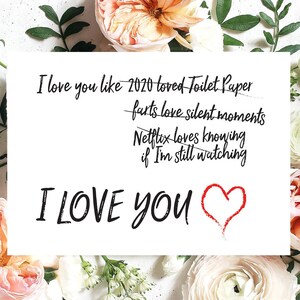 I love you like 2020 loved Toilet Paper
farts love silent moments
Netflix loves knowing
if I'm still watching
I LOVE YOU